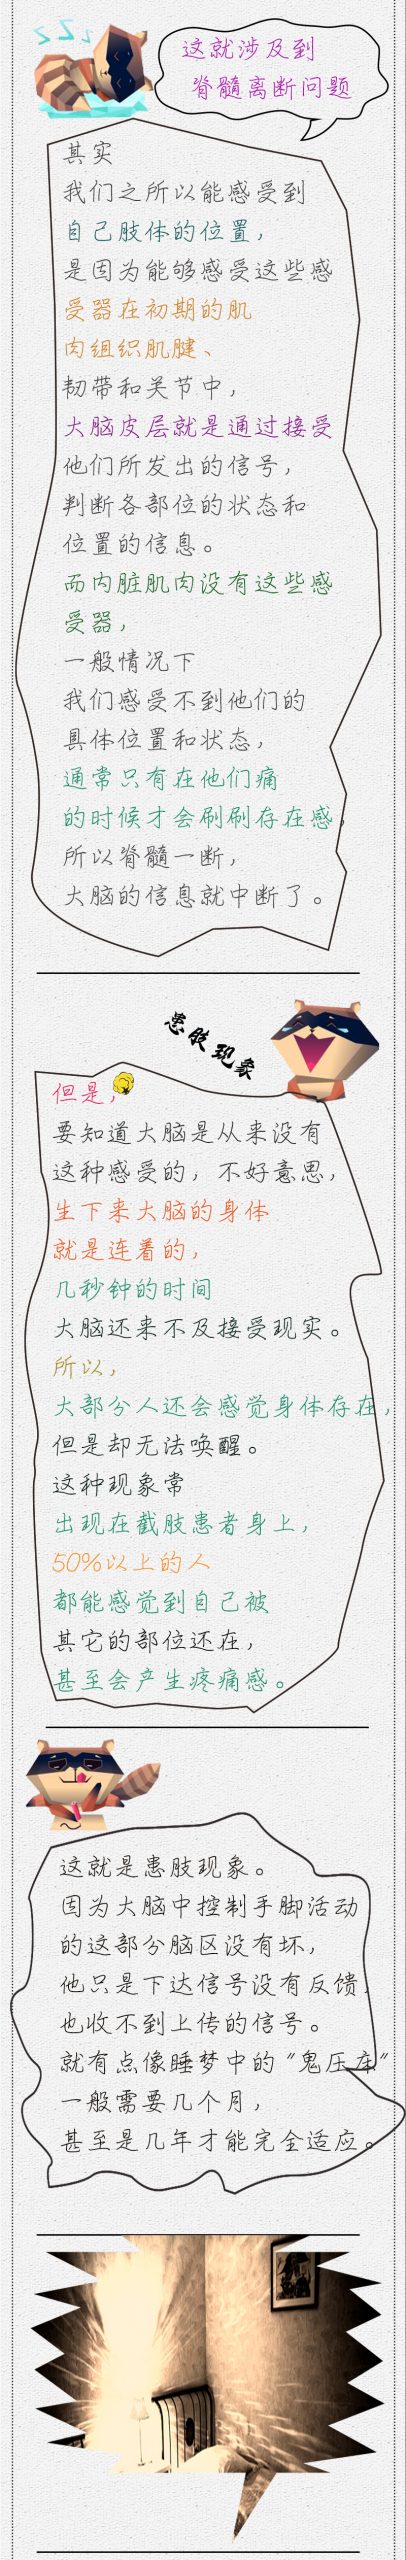 zZZ
这就涉及到
脊髓离断问题
其实
我们之所以能感受到
自己肢体的位置，
是因为能够感受这些感
受器在初期的肌
肉组织肌腱、
韧带和关节中，
大脑皮层就是通过接受
他们所发出的信号，
判断各部位的状态和
位置的信息。
而内脏肌肉没有这些感
受器，
一般情况下
我们感受不到他们的
具体位置和状态，
通常只有在他们痛
的时候才会刷刷存在感，
所以脊髓一断，
大脑的信息就中断了。
患肢现象
但是，
要知道大脑是从来没有
这种感受的，不好意思，
生下来大脑的身体
就是连着的，
几秒钟的时间
大脑还来不及接受现实。
所以，
大部分人还会感觉身体存在，
但是却无法唤醒。
这种现象常
出现在截肢患者身上，
50%以上的人
都能感觉到自己被
其它的部位还在，
甚至会产生疼痛感。
这就是患肢现象。
因为大脑中控制手脚活动
的这部分脑区没有坏，
他只是下达信号没有反馈，
也收不到上传的信号。
就有点像睡梦中的“鬼压床”
一般需要几个月，
甚至是几年才能完全适应。